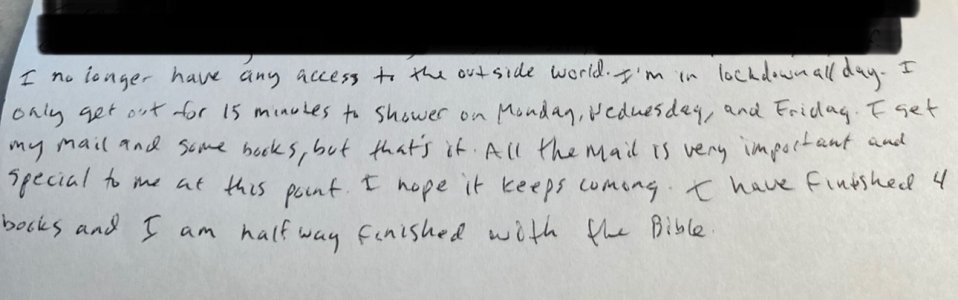 I no longer have any access to the outside world. I'm in lockdown all day. I
only get out for 15 minutes to shower on Monday, Wednesday, and Friday. I get
my mail and some books, but that's it. All the mail is very important and
special to me at this point. I hope it keeps comong. I have finished 4
books and I am halfway finished with the Bible.